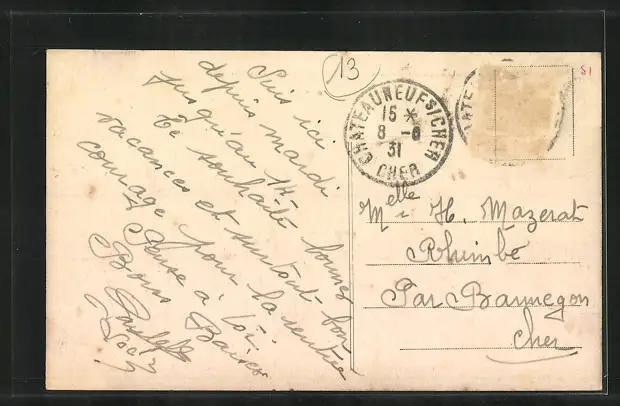 Suis ici
depuis mardi
jusqu'au 14
Te souhaite bonnes
vacances et surtout bon
courage pour la rentrée
Pense à toi.
Bons Baisers
13
CHATEAUNEUF S/CHER
15 *
8 - 8
31
CHER
51
Melle H. Mazerat
Rhimbé
Par Bannegon
Cher